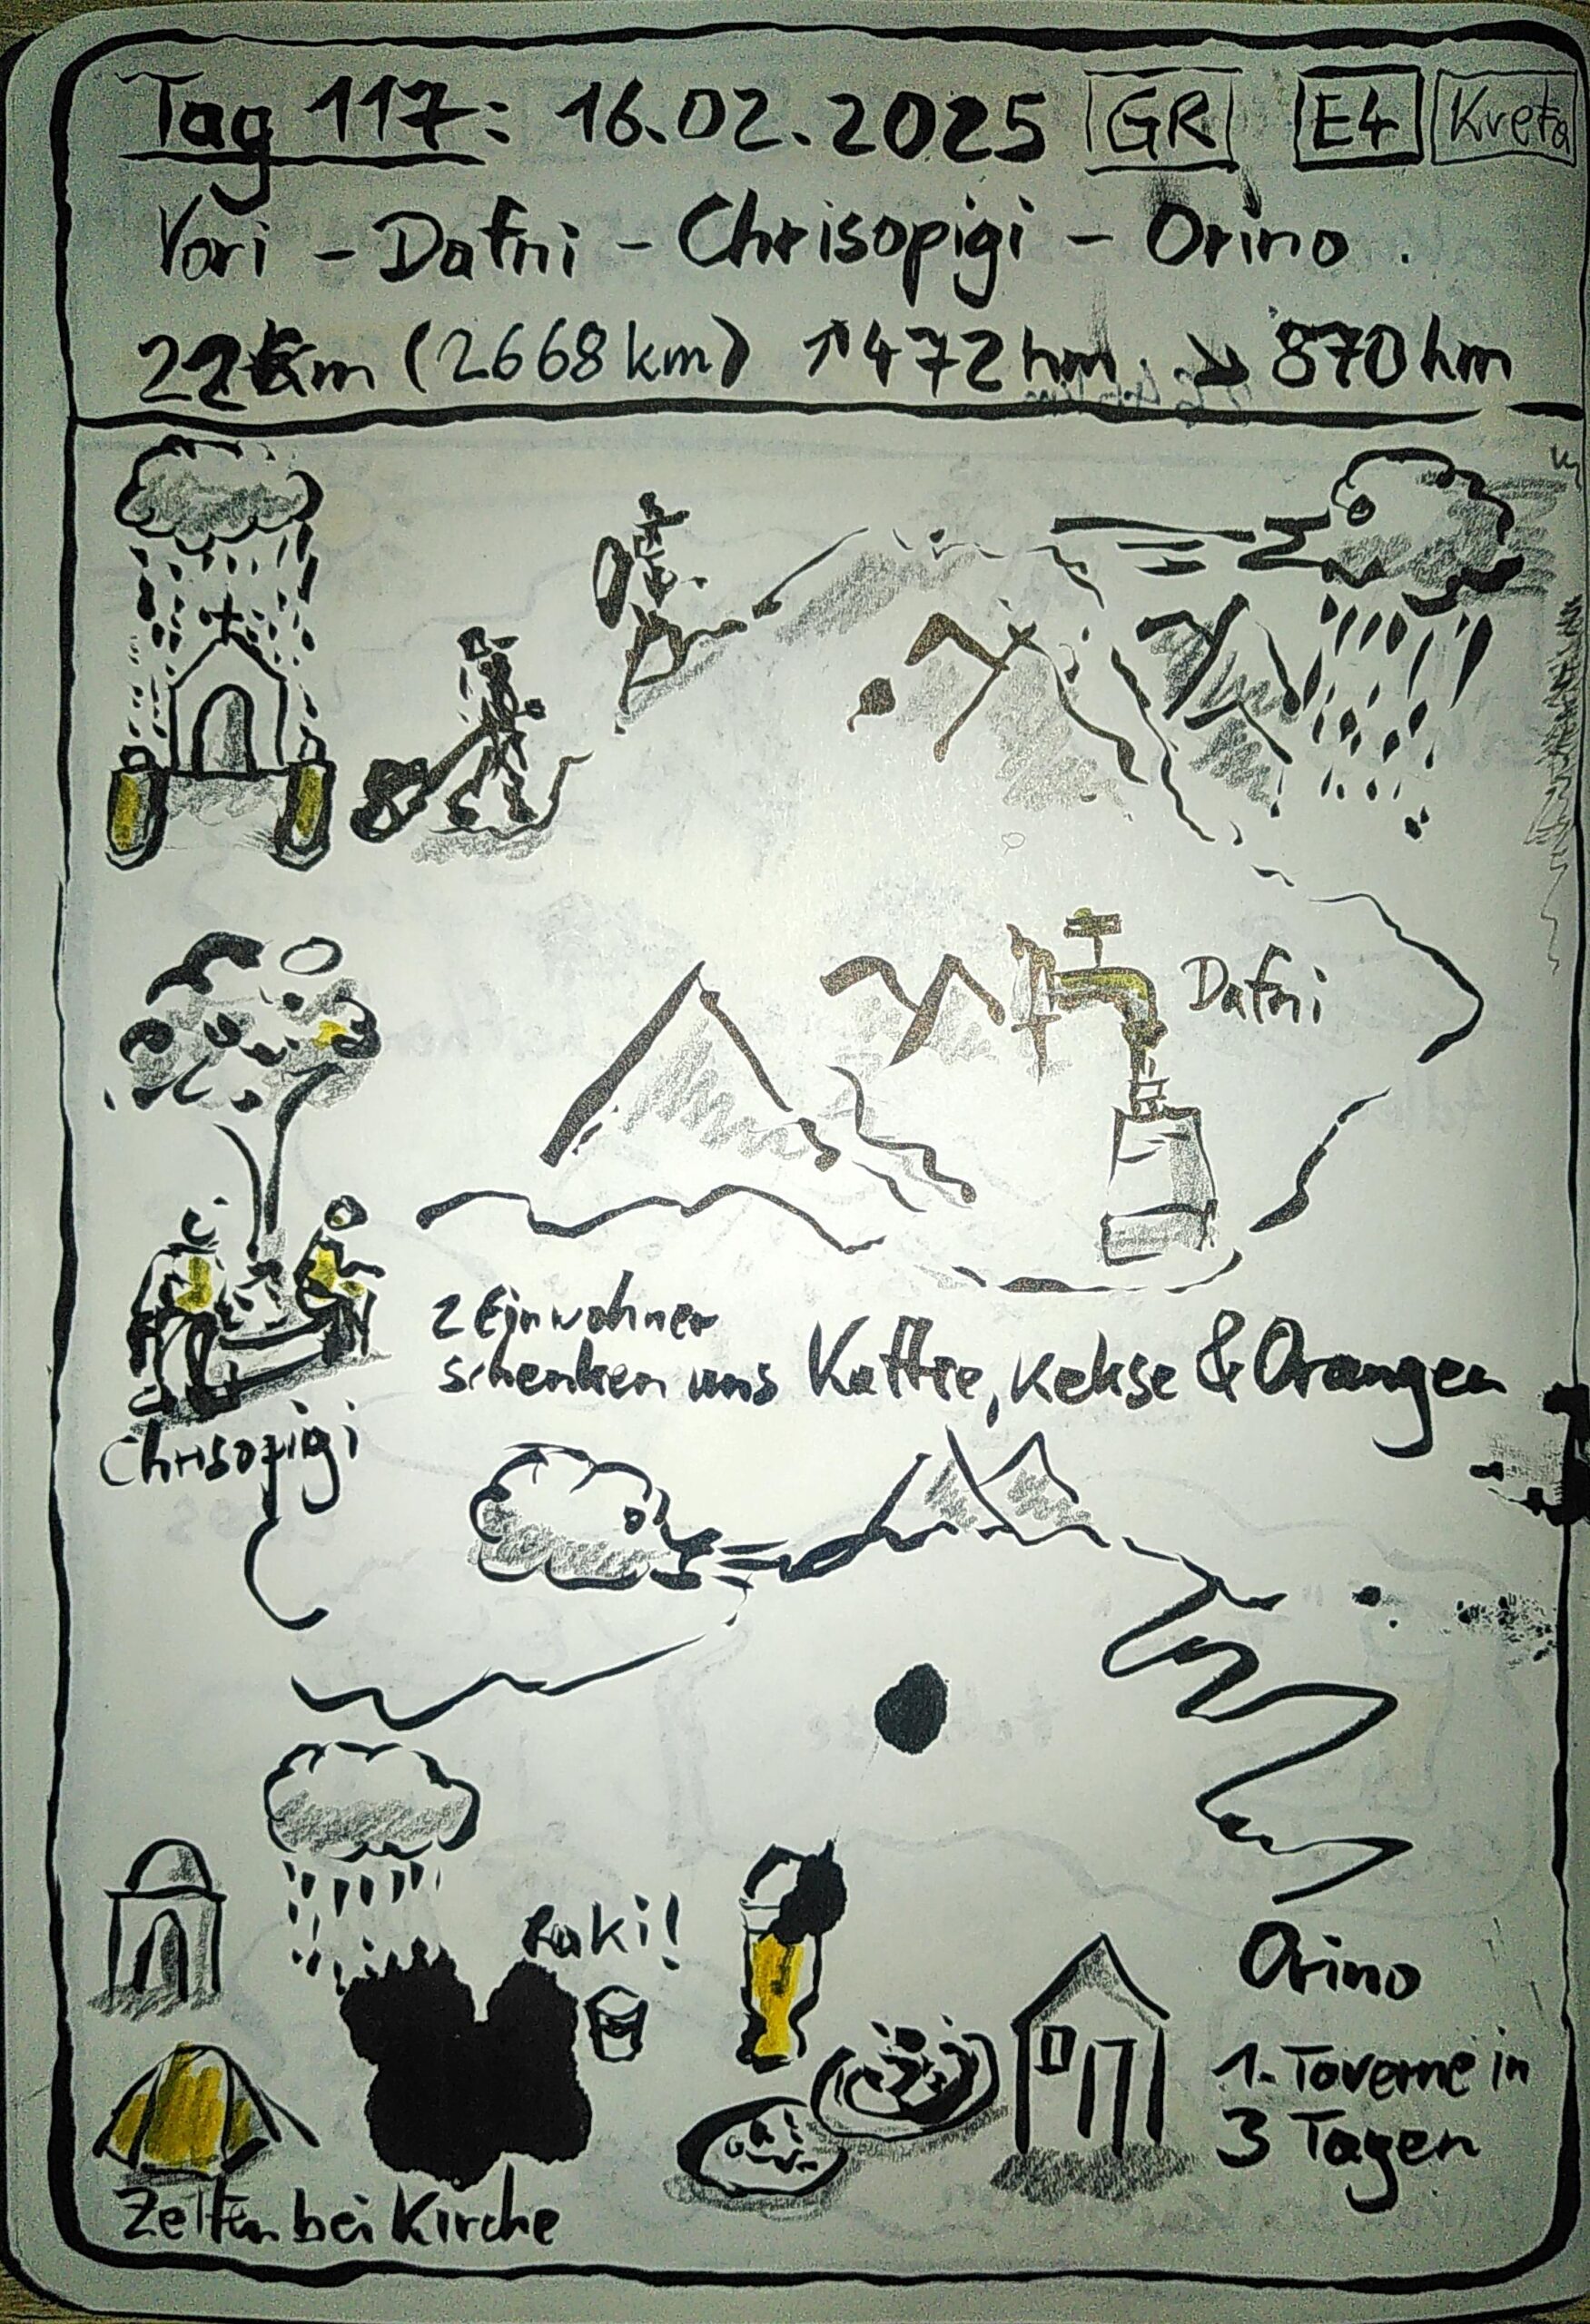 Tag 117: 16.02.2025 GR E4 Kreta
Vori - Dafni - Chrisopigi - Orino
22km (2668km) ↑472hm ↘870hm
Dafni
2 Einwohner
schenken uns Kaffee, Kekse & Orangen
Chrisopigi
Raki!
Orino
1. Taverne in
3 Tagen
Zelten bei Kirche